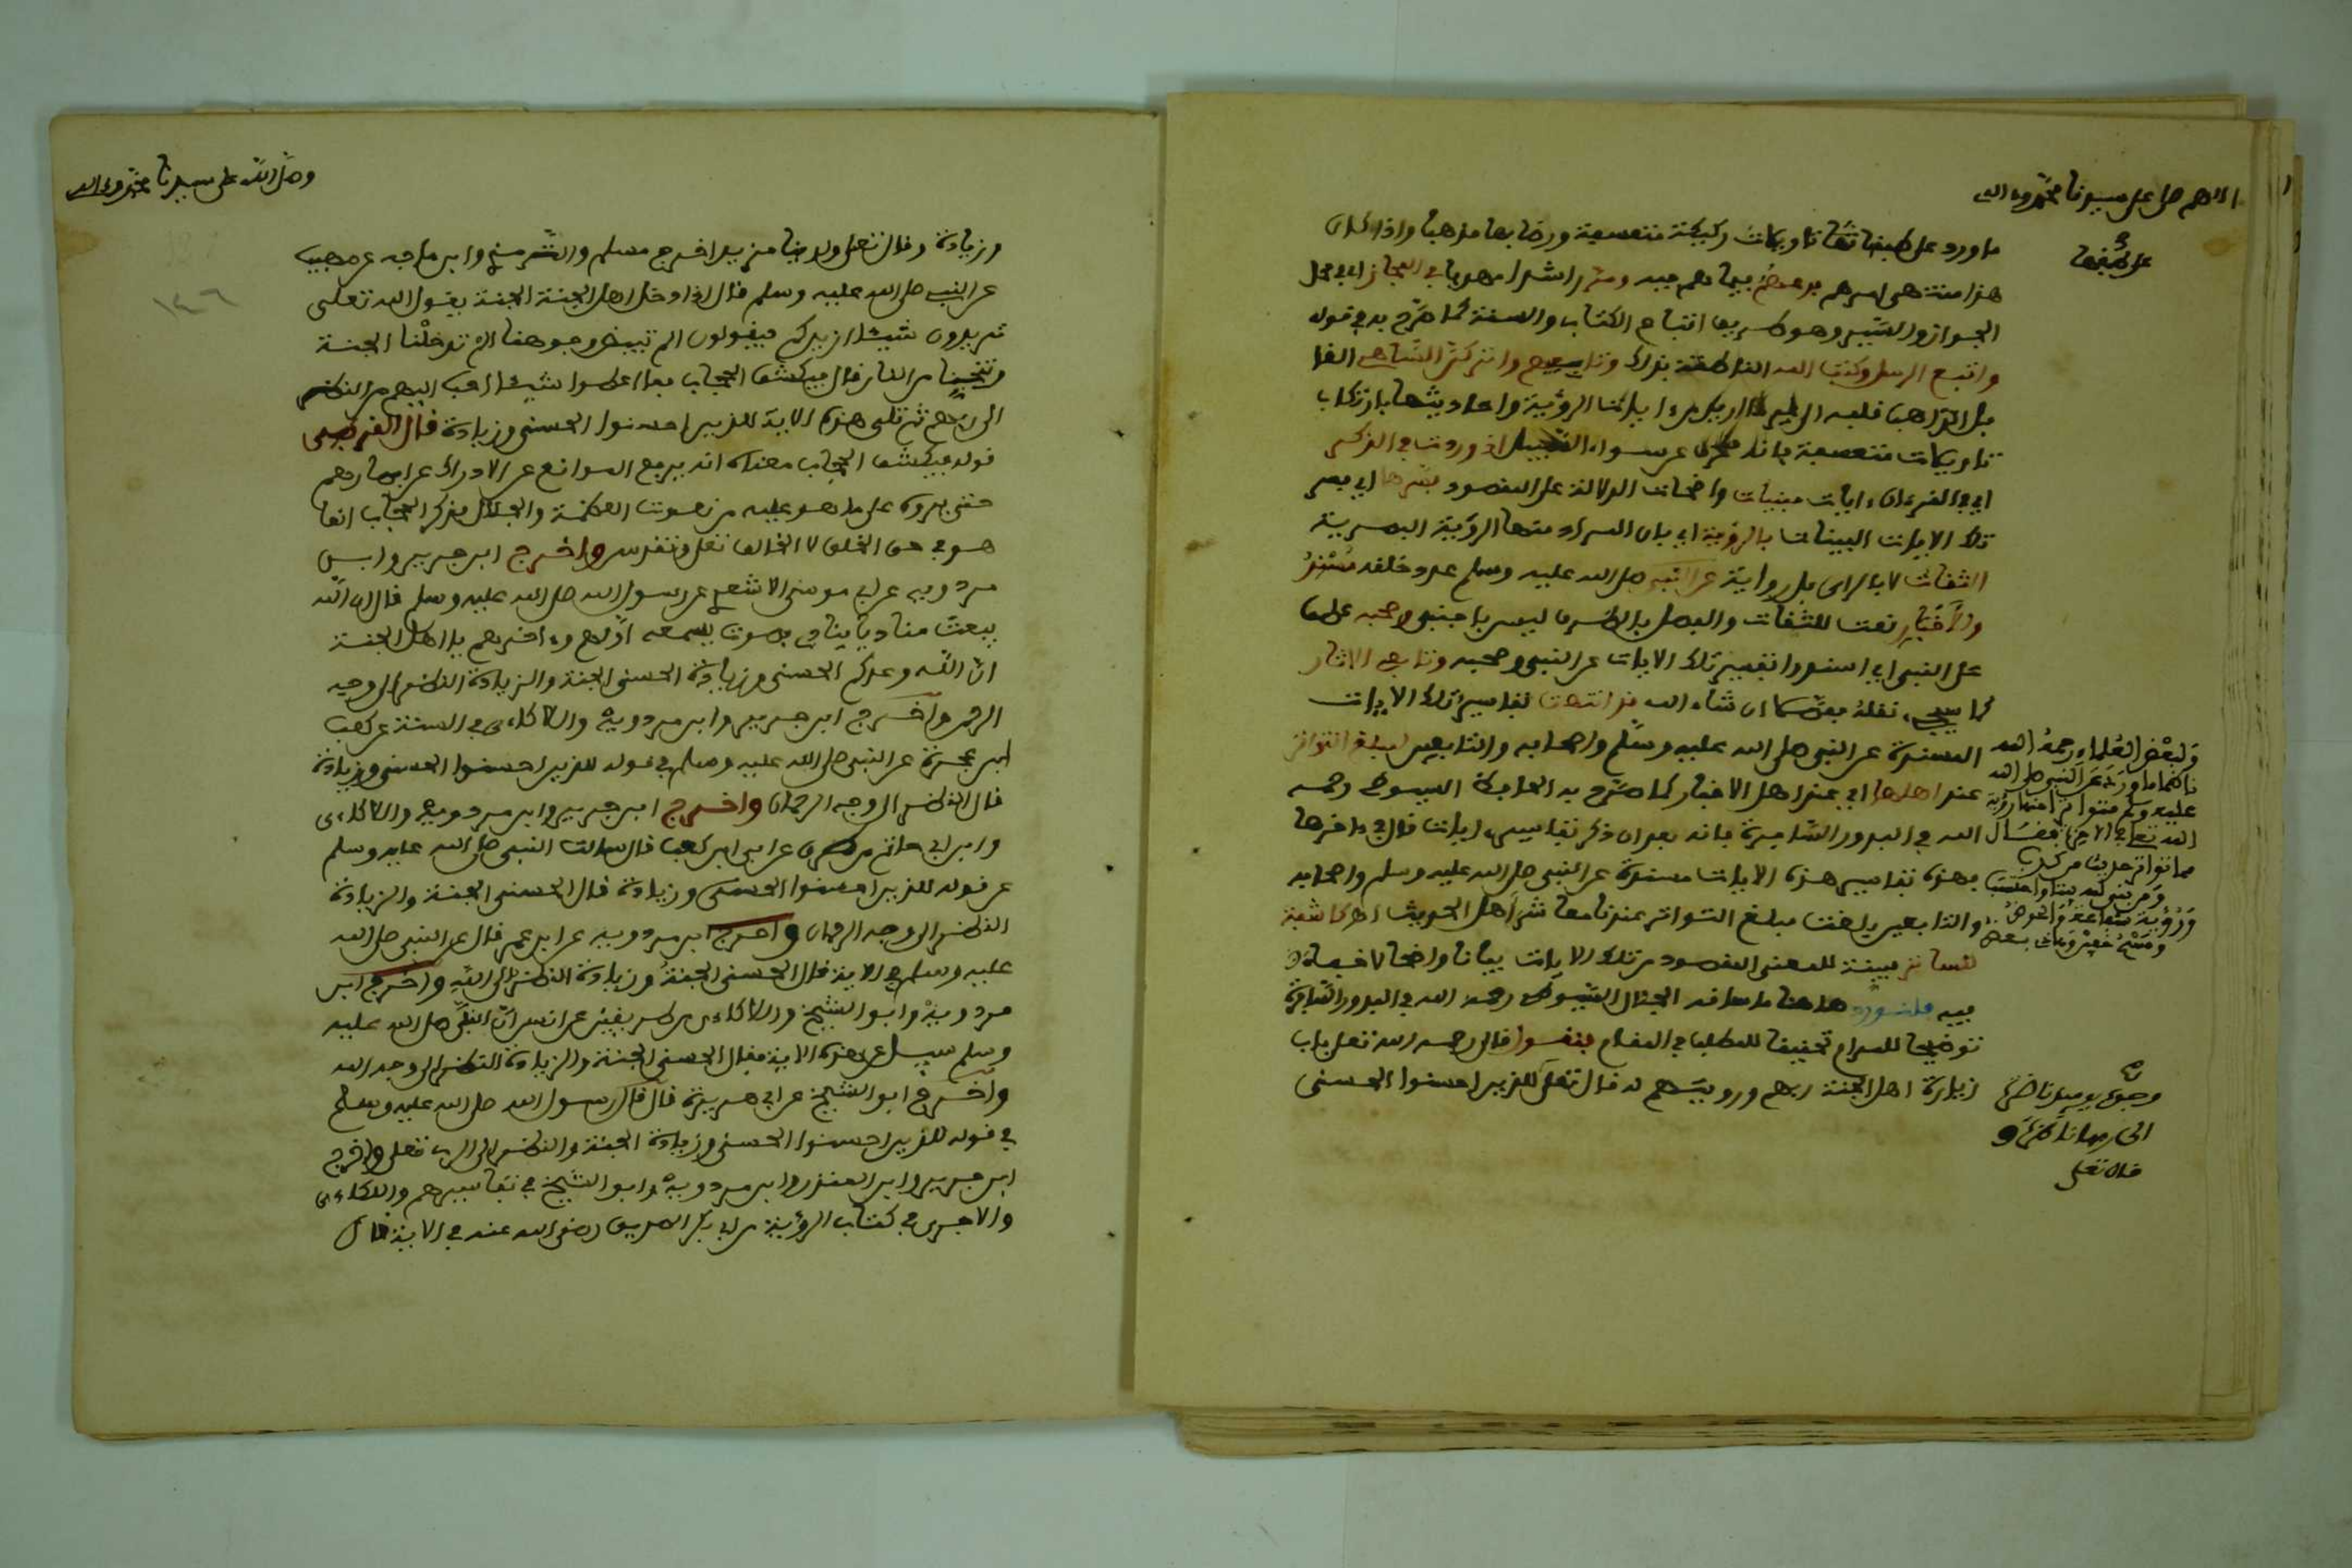 اللهم صل على سيدنا محمد وءاله
ما ورد على طبقاتها تاويلات ركيكة متعسفة ورضا بها مذهبا واذا كان
على وفقها
الجواز والسير وهو طريق اتباع الكتاب والسنة كما صرح به في قوله
واتبع الرسل وكتب الله الناطقة بذلك
تاويلات متعسفة
اي في القرءان ءايات مبينات واضحات الدلالة على المقصود بسرها اي بصر
تلك الايات البينات بالرؤية اي بان المراد منها الرؤية البصرية
الثقات لا بالراي بل رواية عن النبي صلى الله عليه وسلم
والاخيار نعت للثقات والفصل بالظرف ليس باجنبي وصحبه عطف
على النبي اي اسندوا تفسير تلك الايات عن النبي وصحبه وتابعي الاثار
كما سيجيء نقله مفسما ان شاء الله قد انتهت تفاسير تلك الايات
المسندة عن النبي صلى الله عليه وسلم واصحابه والتابعين لمبلغ التواتر
عند اهلها اي عند اهل الاخبار كما صرح به الحافظ السيوطي رحمه
الله في البدور السافرة فانه بعد ان ذكر تفاسير ءايات قال في ءاخرها
فهذه تفاسير هذه الايات مسندة عن النبي صلى الله عليه وسلم واصحابه
والتابعين بلغت مبلغ التواتر عندنا معاشر اهل الحديث
مبينة للمعنى المقصود من تلك الايات بيانا واضحا لا خفاء
فيه فلنورد هاهنا ما ساقه الجلال السيوطي رحمه الله في البدور السافرة
توضيحا للمرام تحقيقا للمطلب في المقام فنقول قال رحمه الله تعلى باب
زيارة اهل الجنة ربهم ورؤيتهم له قال تعلى للذين احسنوا الحسنى
ولبعض العلماء رحمه الله
ناظما ما ورد عن النبي صلى الله
عليه وسلم متواترا منها رؤية
الله تعلى في الاخرة فقال
مما تواتر حديث من كذب
ومن بنى لله بيتا واحتسب
ورؤية شفاعة والحوض
ومسح خفين وهاذي بعض
وجوه يومئذ ناضرة
الى ربها ناظرة و
قال تعلى
وصل الله على سيدنا محمد وءاله
وزيادة وقال تعلى ولدينا مزيد اخرج مسلم والترمذي وابن ماجه عن صهيب
١٤٦
عن النبي صلى الله عليه وسلم قال اذا دخل اهل الجنة الجنة يقول الله تعلى
تريدون شيئا ازيدكم فيقولون الم تبيض وجوهنا الم تدخلنا الجنة
وتنجينا من النار قال فيكشف الحجاب فما اعطوا شيئا احب اليهم من النظر
الى ربهم ثم تلى هذه الاية للذين احسنوا الحسنى وزيادة قال القرطبي
قوله فيكشف الحجاب معناه انه يرفع الموانع عن الادراك عن ابصارهم
حتى يروه على ما هو عليه من نعوت العظمة والجلال فذكر الحجاب انما
هو في حق الخلق لا الخالق تعلى وتقدس واخرج ابن جرير وابن
مردويه عن ابي موسى الاشعري عن رسول الله صلى الله عليه وسلم قال ان الله
يبعث مناديا ينادي بصوت يسمعه اولهم وءاخرهم يا اهل الجنة
ان الله وعدكم الحسنى وزيادة الحسنى الجنة والزيادة النظر الى وجه
الرحمن واخرج ابن جرير وابن مردويه واللالكاءي في السنة عن كعب
ابن عجرة عن النبي صلى الله عليه وسلم في قوله للذين احسنوا الحسنى وزيادة
قال النظر الى وجه الرحمان واخرج ابن جرير وابن مردويه واللالكاءي
وابن ابي حاتم من طرق عن ابي ابن كعب قال سالت النبي صلى الله عليه وسلم
عن قوله للذين احسنوا الحسنى وزيادة قال الحسنى الجنة والزيادة
النظر الى وجه الرحمان واخرج ابن مردويه عن ابن عمر قال عن النبي صلى الله
عليه وسلم في الاية قال الحسنى الجنة وزيادة النظر الى الله واخرج ابن
مردويه وابو الشيخ واللالكاءي من طريقين عن انس ان النبي صلى الله عليه
وسلم سيل عن هذه الاية فقال الحسنى الجنة والزيادة النظر الى وجه الله
واخرج ابو الشيخ عن ابي هريرة قال قال رسول الله صلى الله عليه وسلم
في قوله للذين احسنوا الحسنى وزيادة الجنة والنظر الى الرب تعلى واخرج
ابن جرير وابن المنذر وابن مردويه وابو الشيخ في تفاسيرهم واللالكاءي
والاجري في كتاب الرؤية عن ابي بكر الصديق رضي الله عنه في الاية قال